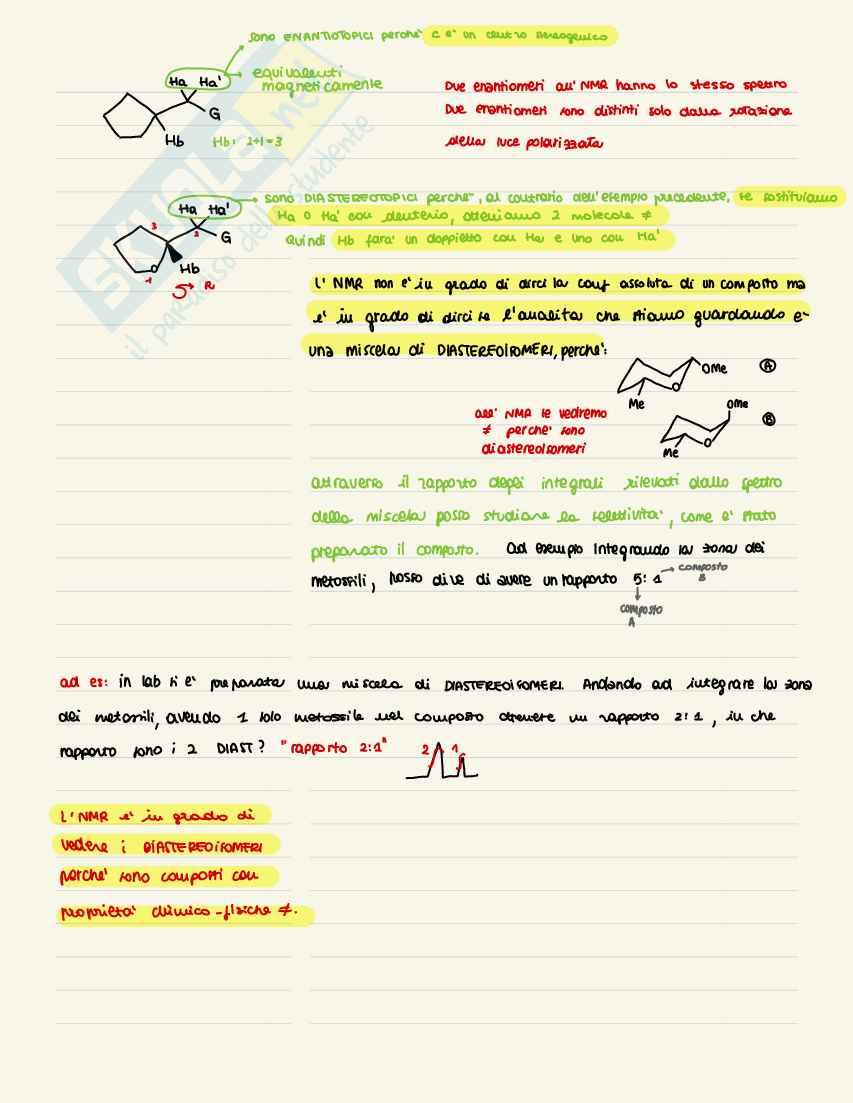 sono ENANTIOTOPICI perché c'è un centro stereogenico
Ha Ha' equivalenti
magneticamente
G
Hb Hb: 2+1=3
Due enantiomeri all'NMR hanno lo stesso spettro
Due enantiomeri sono distinti solo dalla rotazione
della luce polarizzata
sono DIASTEREOTOPICI perché, al contrario dell'esempio precedente, se sostituiamo
Ha Ha'
Ha o Ha' con deuterio, otteniamo 2 molecole ≠
3 2 G
Quindi Hb farà un doppietto con Ha e uno con Ha'
O Hb
1 R
L'NMR non è in grado di dirci la conf assoluta di un composto ma
è in grado di dirci se l'analita che stiamo guardando è
una miscela di DIASTEREOISOMERI, perché:
O OMe A
Me
OMe B
O
Me
all'NMR le vedremo
≠ perché sono
diastereoisomeri
attraverso il rapporto degli integrali rilevati dallo spettro
della miscela posso studiare la selettività, come è stato
preparato il composto. Ad esempio integrando la zona dei
metossili, posso dire di avere un rapporto 5:1
composto
B
composto
A
ad es: in lab si è preparata una miscela di DIASTEREOISOMERI. Andando ad integrare la zona
dei metossili, avendo 1 solo metossile nel composto ottenere un rapporto 2:1, in che
rapporto sono i 2 DIAST? "rapporto 2:1" 2 1
L'NMR è in grado di
vedere i DIASTEREOISOMERI
perché sono composti con
proprietà chimico-fisiche ≠.
SKUOLA.net
il paradiso dello studente